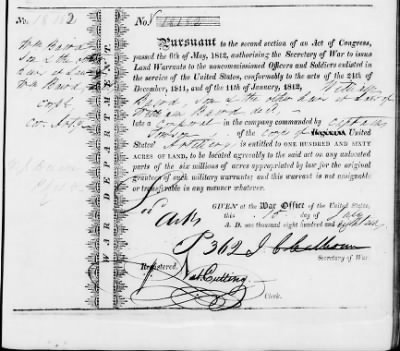 No. 18182
No. 18182
Wm Baird
son & the other
heirs at Law of
Wm Baird,
Corpl
Cor Arty
WAR DEPARTMENT.
Pursuant to the second section of an Act of Congress,
passed the 6th of May, 1812, authorising the Secretary of War to issue
Land Warrants to the noncommissioned Officers and Soldiers enlisted
in the service of the United States, conformably to the acts of the 24th of
December, 1811, and of the 11th of January, 1812, William
Baird, son & the other heirs at Law of
William Baird
late a Corporal in the company commanded by Captain
of the Corps of United
States' Artillery is entitled to ONE HUNDRED AND SIXTY
ACRES OF LAND, to be located agreeably to the said act on any unlocated
parts of the six millions of acres appropriated by law for the original
grantees of such military warrants; and this warrant is not assignable
or transferable in any manner whatever.
GIVEN at the War Office of the United States,
this 10th day of July
A. D. one thousand eight hundred and
Arks
P 362 J C Calhoun
Secretary of War
Registered.
Nat Cutting
Clerk.